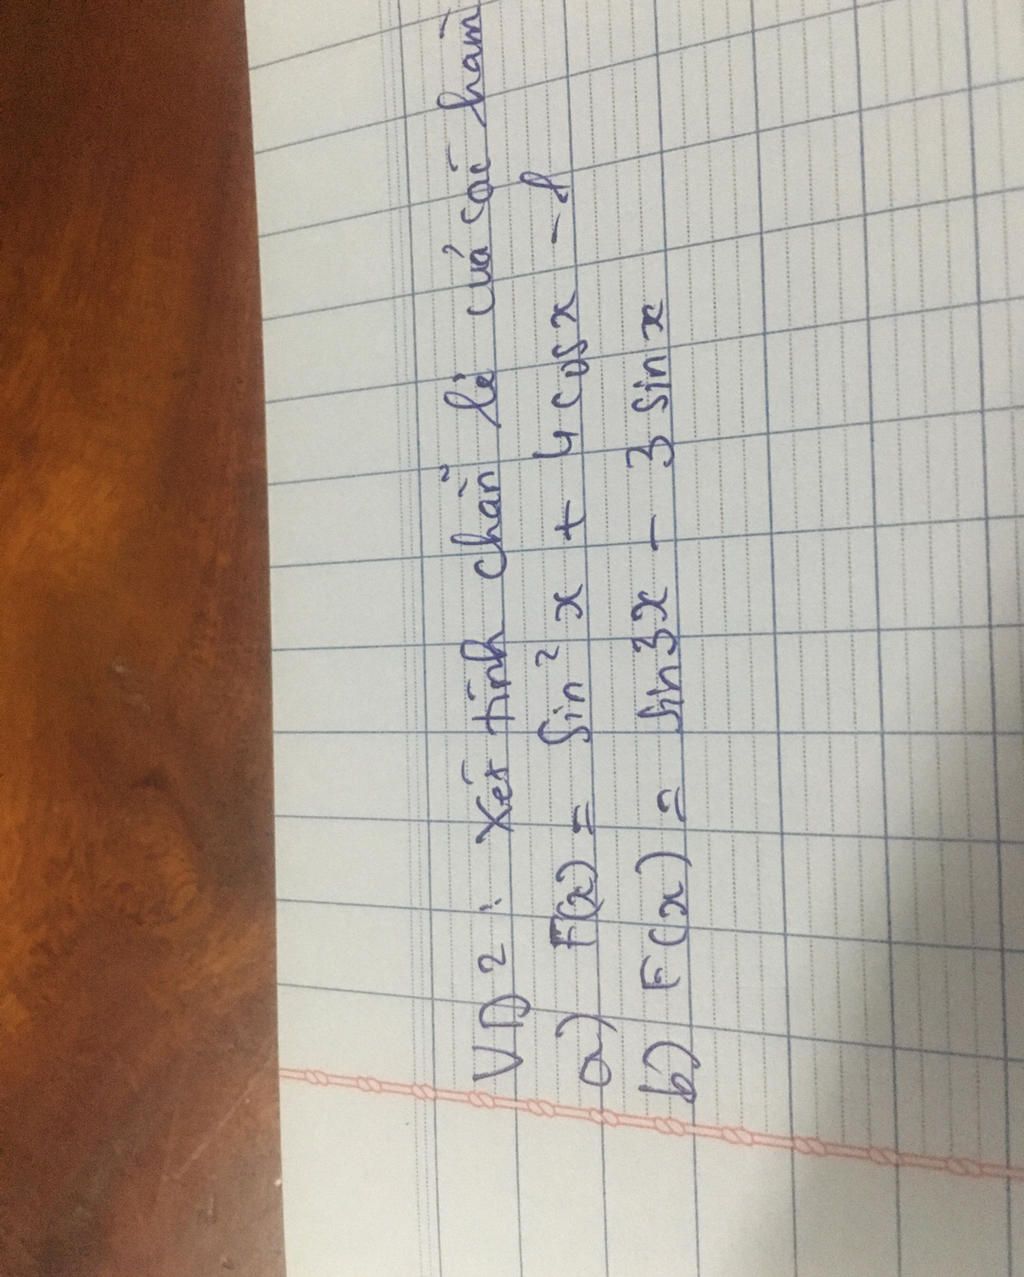 VD2: Xét tính chẵn lẻ của các hàm
a) F(x) = sin² x + 4 cosx - 8
b) F(x) = sin3x - 3 sin x